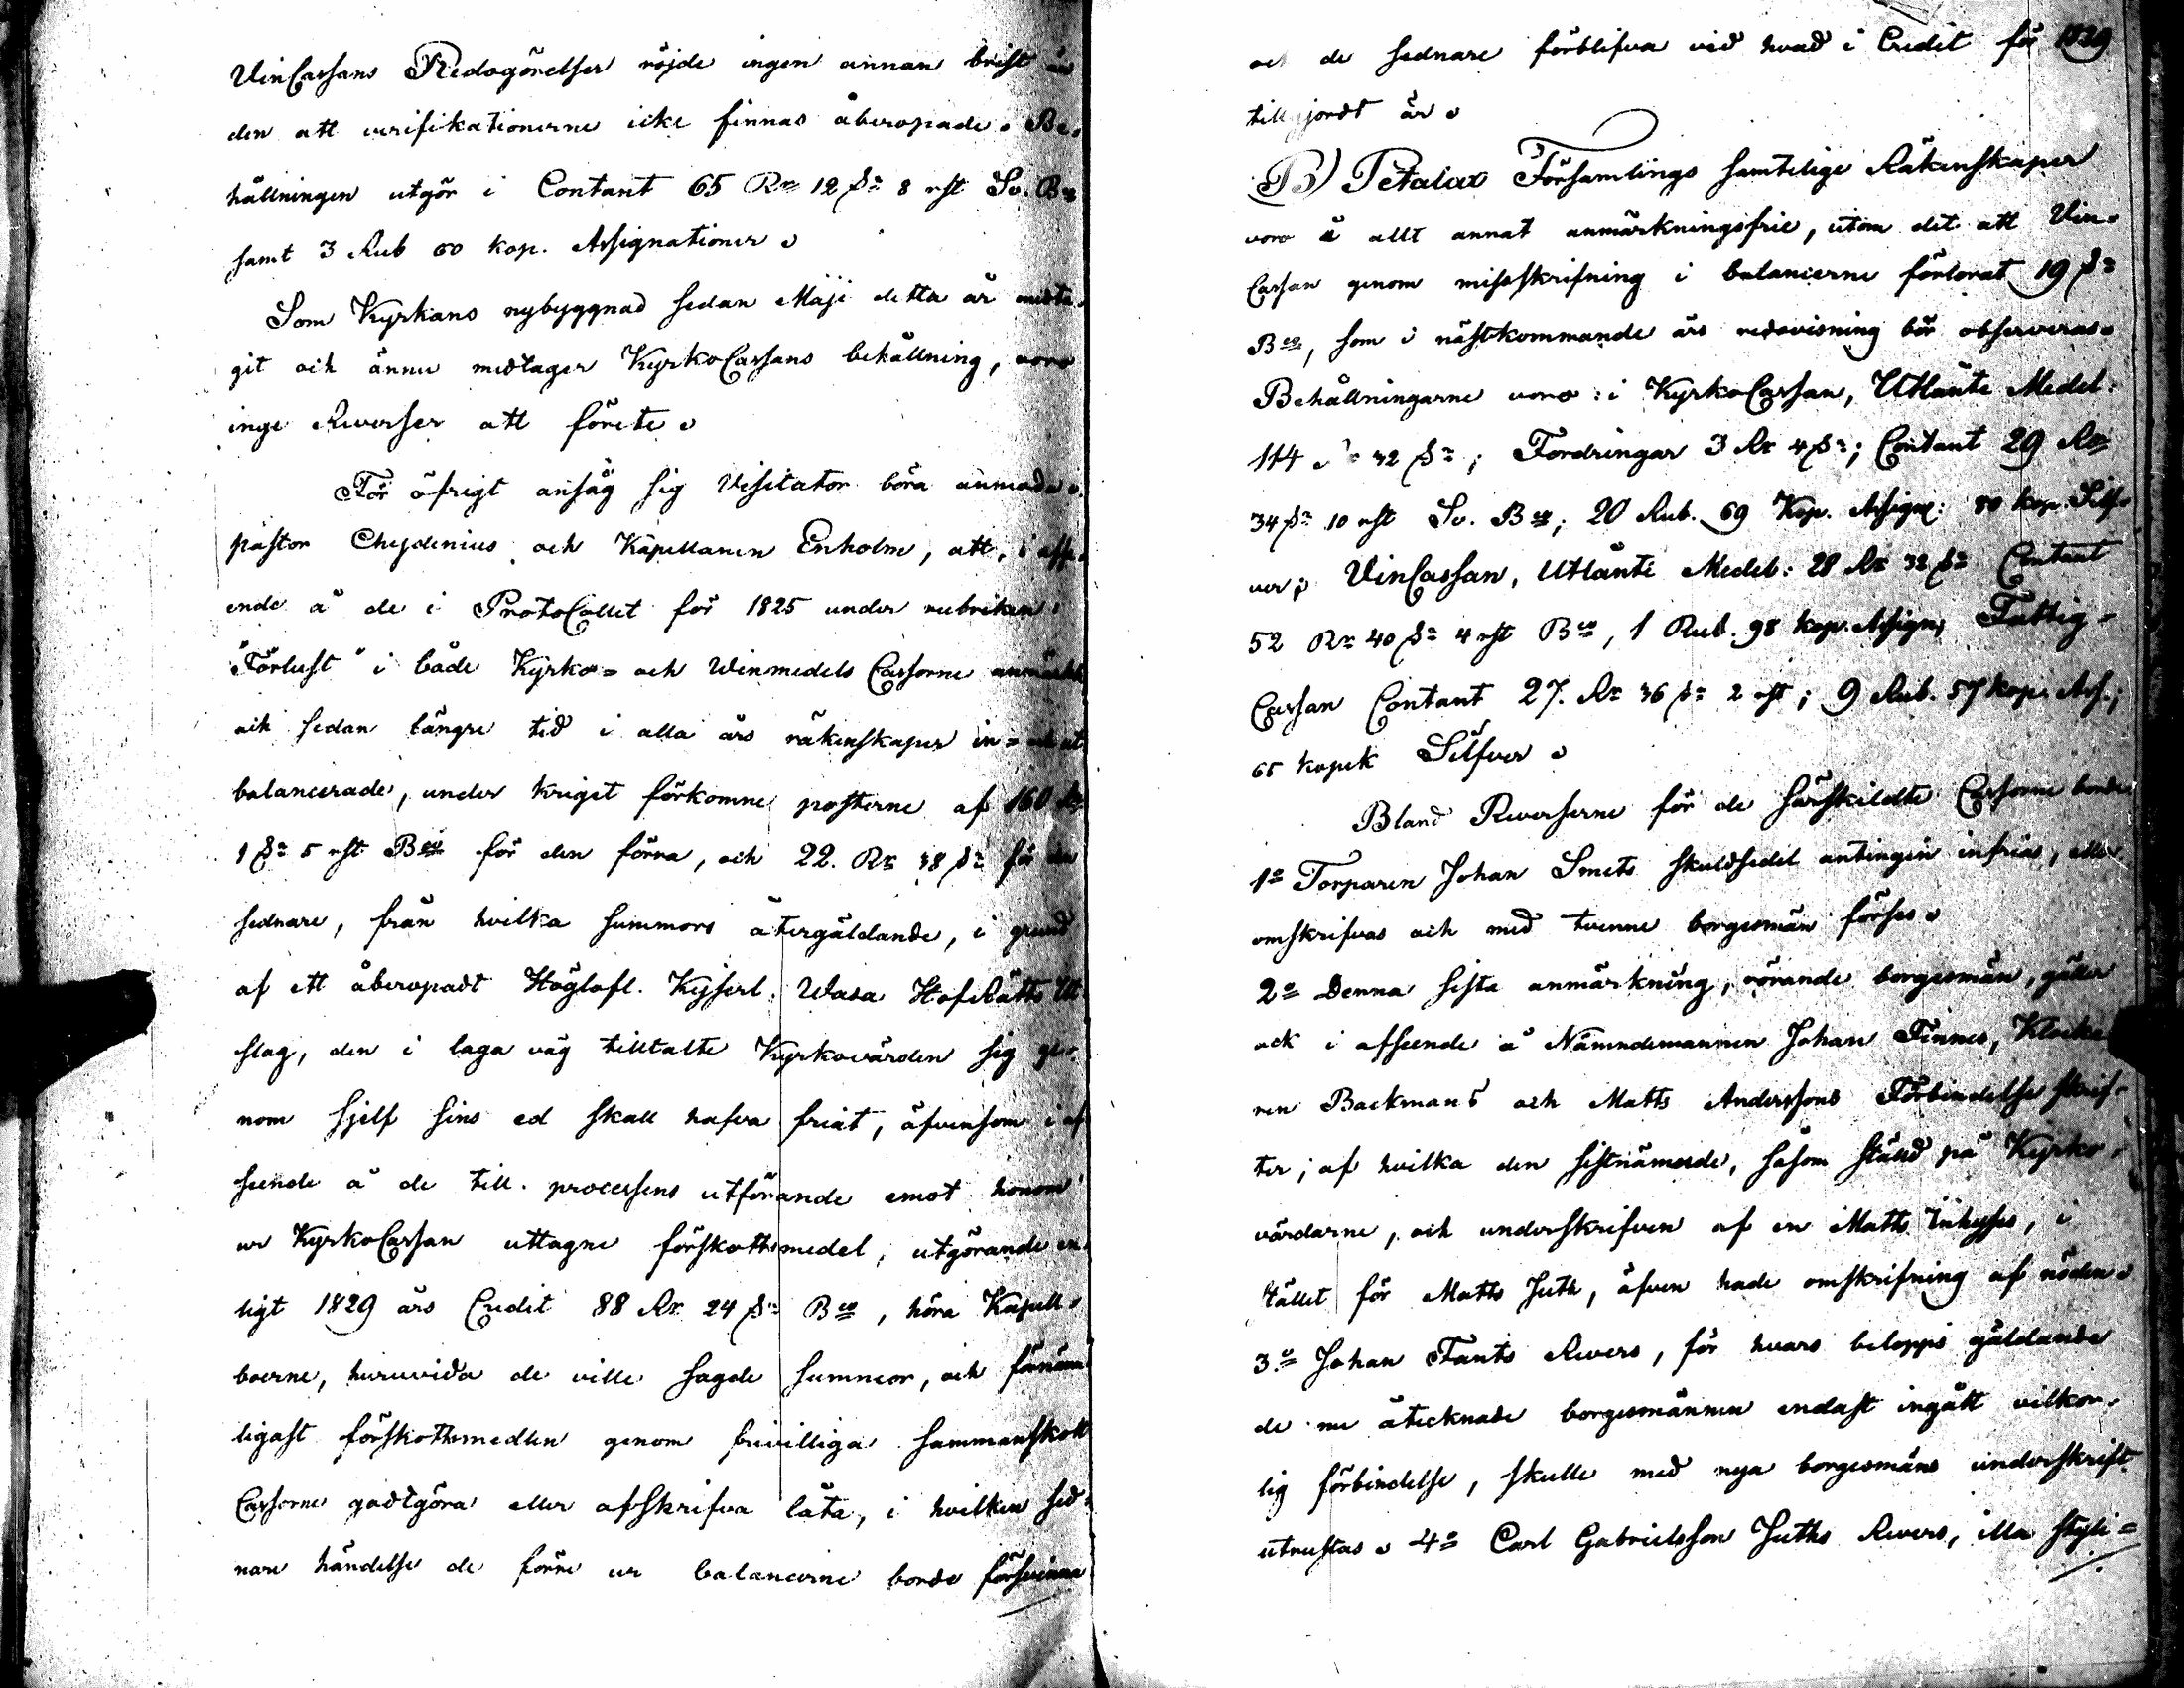 VinCassans Redogörelser röjde ingen annan brist än
den att verifikationerne icke finnas åberopade. Be-
hållningen utgör i Contant 65 Rr 12 s: 8 rst Sv. Bco
samt 3 Rub 60 kop. Assignationer.
Som Kyrkans nybyggnad sedan Maji detta år medta-
git och ännu medtager KyrkoCassans behållning, voro
inge Reverser att förete.
För öfrigt ansåg sig Visitator böra anmoda
pastor Chydenius och Kapellanen Enholm, att, i afse-
ende å de i ProtoCollet för 1825 under rubriken
"Förlust" i både Kyrko- och Winmedels Cassorne anmärkte
och sedan längre tid i alla års räkenskaper in- och ut
balancerade, under kriget förkomne posterne af 160 Rr
1 s: 5 rst Bco för den förra, och 22. Rr 38 s: för den
sednare, från hvilka summors återgäldande, i grund
af ett åberopadt Höglofl. Kejserl. Wasa HofRätts Ut
slag, den i laga väg tilltalte Kyrkovärden sig ge-
nom sjelf sins ed skall hafva friat, äfvensom i af
seende å de till processens utförande emot honom
ur KyrkoCassan uttagne förskottsmedel, utgörande en-
ligt 1829 års Credit 88 Rr 24 s: Bco, höra Kapell-
boerne, huruvida de ville sagde summor, och förnäm-
ligast förskottsmedlen genom frivilliga sammanskott
Cassorne godtgöra eller afskrifva låta, i hvilken sed-
nare händelse de förre ur balancerne borde försvinna
och de sednare förblifva vid hvad i Credit för 1829
tillgjordt är.
B) Petalax Församlings samtelige Räkenskaper
voro i allt annat anmärkningsfrie, utom det att Vin-
Cassan genom misskrifning i balancerne förlorat 19 s:
Bco, som i nästkommande års redovisning bör observeras.
Behållningarne voro: i KyrkoCassan, Utlänte Medel:
114 Rr 32 s:; Fordringar 3 Rr 4 s:; Contant 29 Rr
34 s: 10 rst Sv. Bco; 20 Rub. 69 Kop. Assign: 80 kop. Silf-
ver; VinCassan, Utlänte Medel: 28 Rr 32 s: Contant
52 Rr 40 s: 4 rst Bco, 1 Rub. 98 kop. Assign; Fattig-
Cassan Contant 27. Rr 36 s: 2 rst; 9 Rub. 57 kop. Ass.;
65 kopek Silfver.
Bland Reverserne för de särskildte Cassorne borde
1o Torparen Johan Smeds skuldsedel antingen infrias, eller
omskrifvas och med tvenne borgesmän förses.
2o Denna sista anmärkning, rörande borgesmän, gäller
ock i afseende å Nämndemannen Johan Finnes, Klocka-
ren Backmans och Matts Anderssons Förbindelse skrif-
ter; af hvilka den sistnämnde, såsom stäld på Kyrko-
värdarne, och underskrifven af en Matts Inhyses, i
stället för Matts Juth, äfven hade omskrifning af nöden.
3o Johan Fants Revers, för hvars belopps gäldande
de nu åtecknade borgesmännen endast ingått vilkor-
lig förbindelse, skulle med nya borgesmäns underskrift
utrustas. 4o Carl Gabrielsson Juths Revers, illa styli-